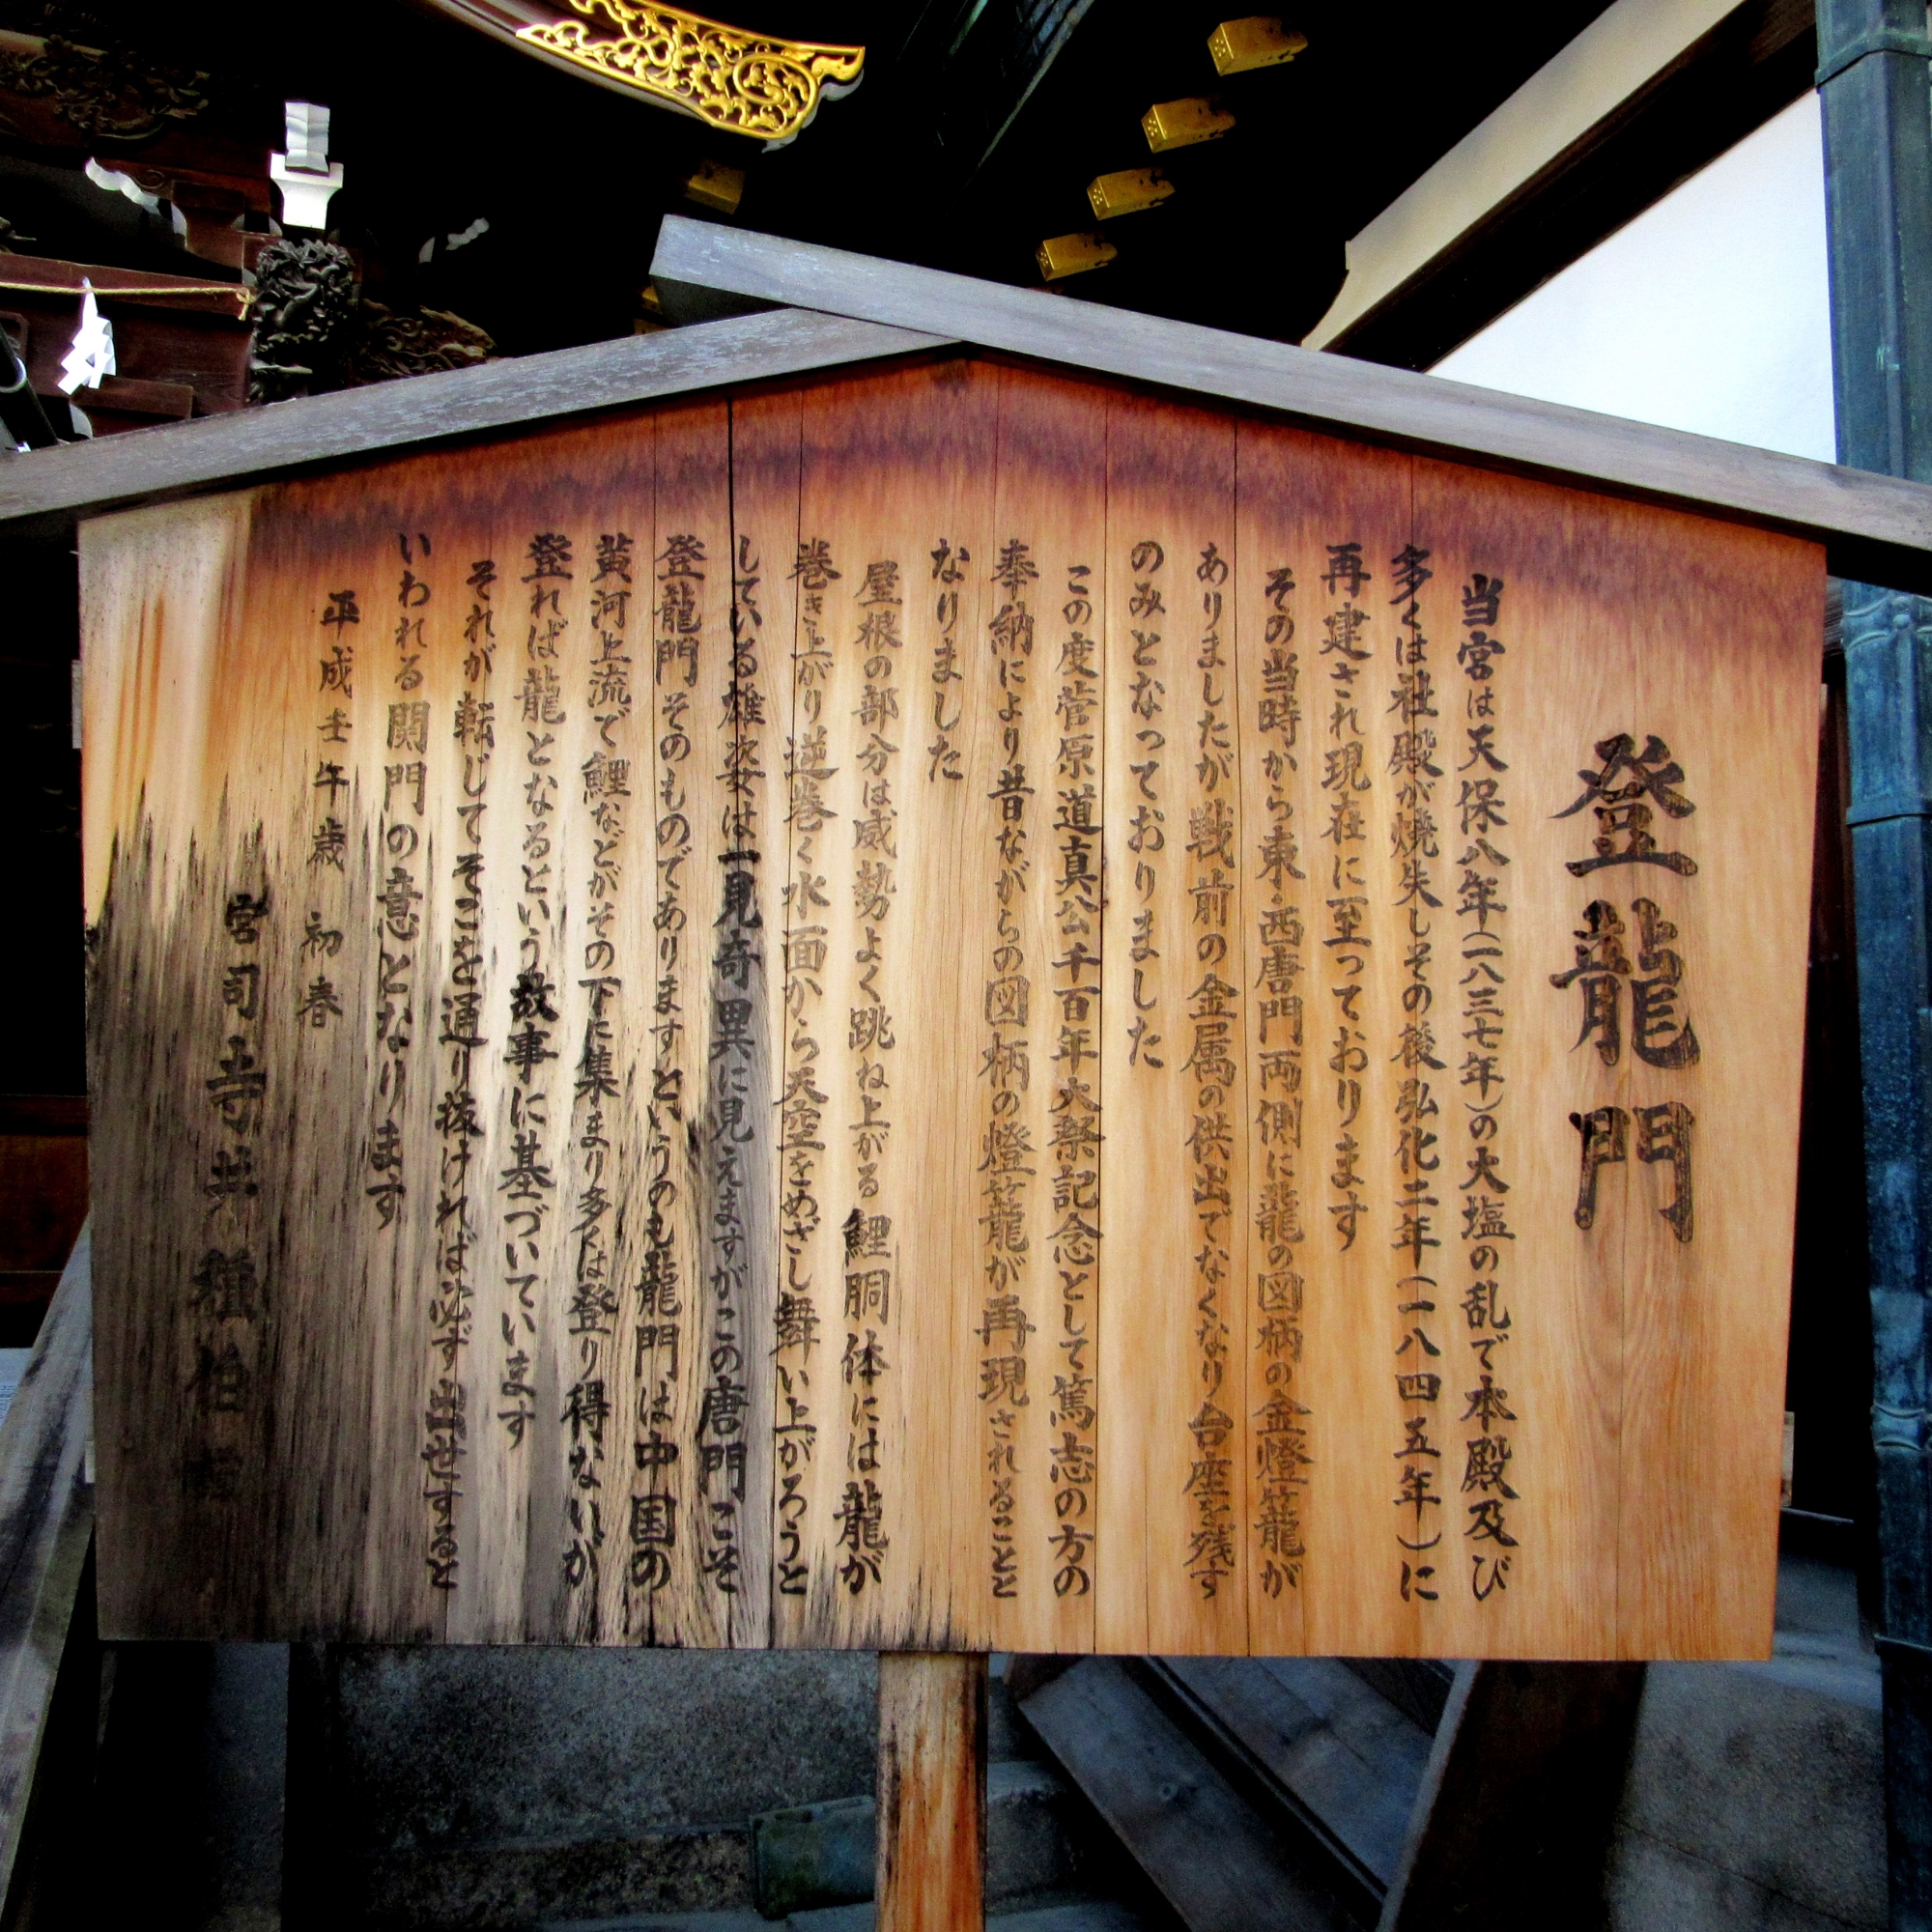 登龍門
当宮は天保八年(一八三七年)の大塩の乱で本殿及び
多くは社殿が焼失しその後弘化二年(一八四五年)に
再建され現在に至っております
その当時から東・西唐門両側に龍の図柄の金燈籠が
ありましたが戦前の金属の供出でなくなり台座を残す
のみとなっておりました
この度菅原道真公千百年大祭記念として篤志の方の
奉納により昔ながらの図柄の燈籠が再現されることと
なりました
屋根の部分は威勢よく跳ね上がる鯉胴体には龍が
巻き上がり逆巻く水面から天空をめざし舞い上がろうと
している雄姿は一見奇異に見えますがこの唐門こそ
登龍門そのものでありますというのも龍門は中国の
黄河上流で鯉などがその下に集まり多くは登り得ないが
登れば龍となるという故事に基づいています
それが転じてそこを通り抜ければ必ず出世すると
いわれる関門の意となります
平成壬午歳 初春
宮司 寺井種伯